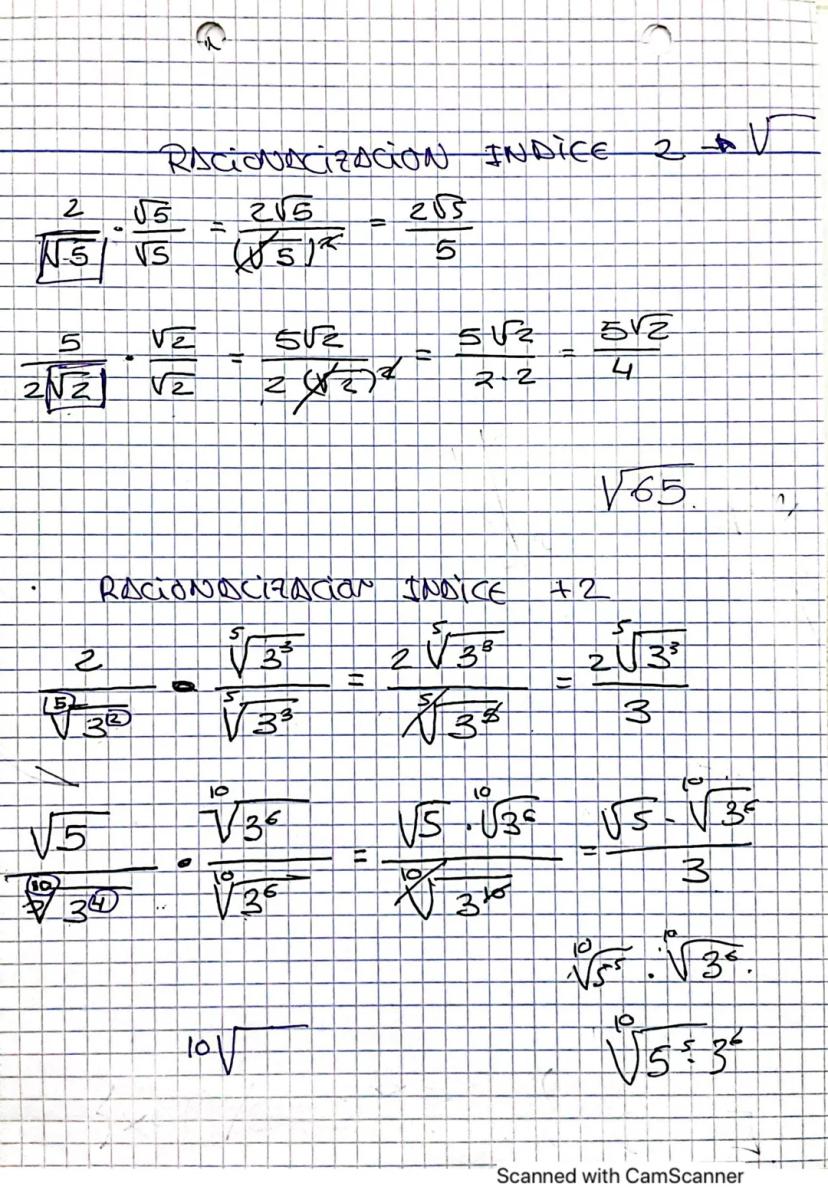 RACIONALIZACION INDICE 2 → √
2/√5 · √5/√5 = 2√5/(√5)² = 2√5/5
5/(2√2) · √2/√2 = 5√2/(2(√2)²) = 5√2/(2·2) = 5√2/4
√65
RACIONALIZACION INDICE +2
2/⁵√3² · ⁵√3³/⁵√3³ = 2 ⁵√3³/⁵√3⁵ = 2 ⁵√3³/3
√5/¹⁰√3⁴ · ¹⁰√3⁶/¹⁰√3⁶ = √5 · ¹⁰√3⁶/¹⁰√3¹⁰ = √5 · ¹⁰√3⁶/3
¹⁰√5⁵ · ¹⁰√3⁶
10√
¹⁰√5⁵·3⁶
Scanned with CamScanner